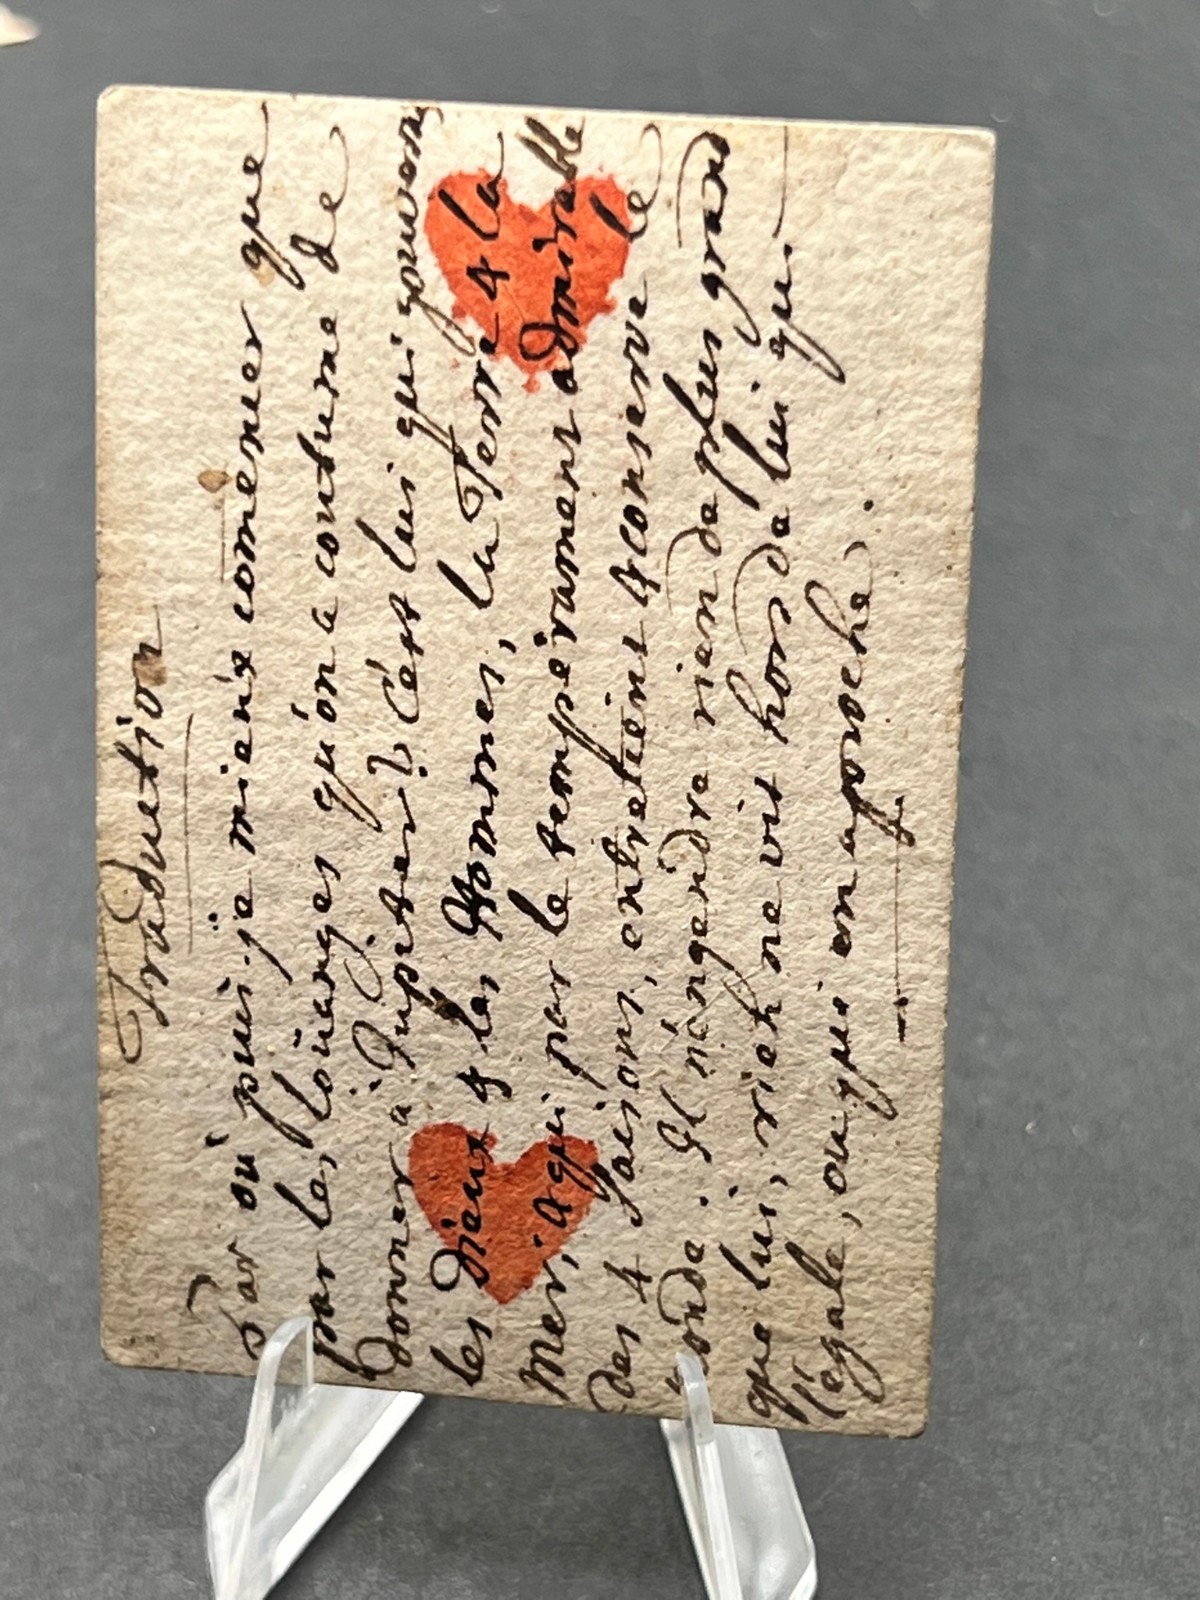 Traduction
Par où puis-je mieux comencer que
par les loüanges qu'on a coutume de
donner à Jupiter? C'est lui qui gouvern
les Dieux & les Hommes, la Terre & la
Mer; & qui par le temperament admirable
des 4 saisons, entretient & conserve le
monde. Il n'engendre rien de plus grand
que lui, rien ne vit hors de lui qui
l'égale, ou qui en aproche.